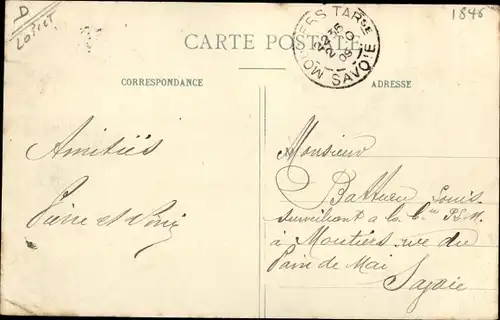 D
Loiret
1846
CARTE POSTALE
MOUTIERS TARSE
SAVOIE
CORRESPONDANCE
ADRESSE
Amitiés
Pierre et
Monsieur
Louis
Surveillant a la Cie P.L.M.
à Moutiers rue du
Pain de Mai
Savoie